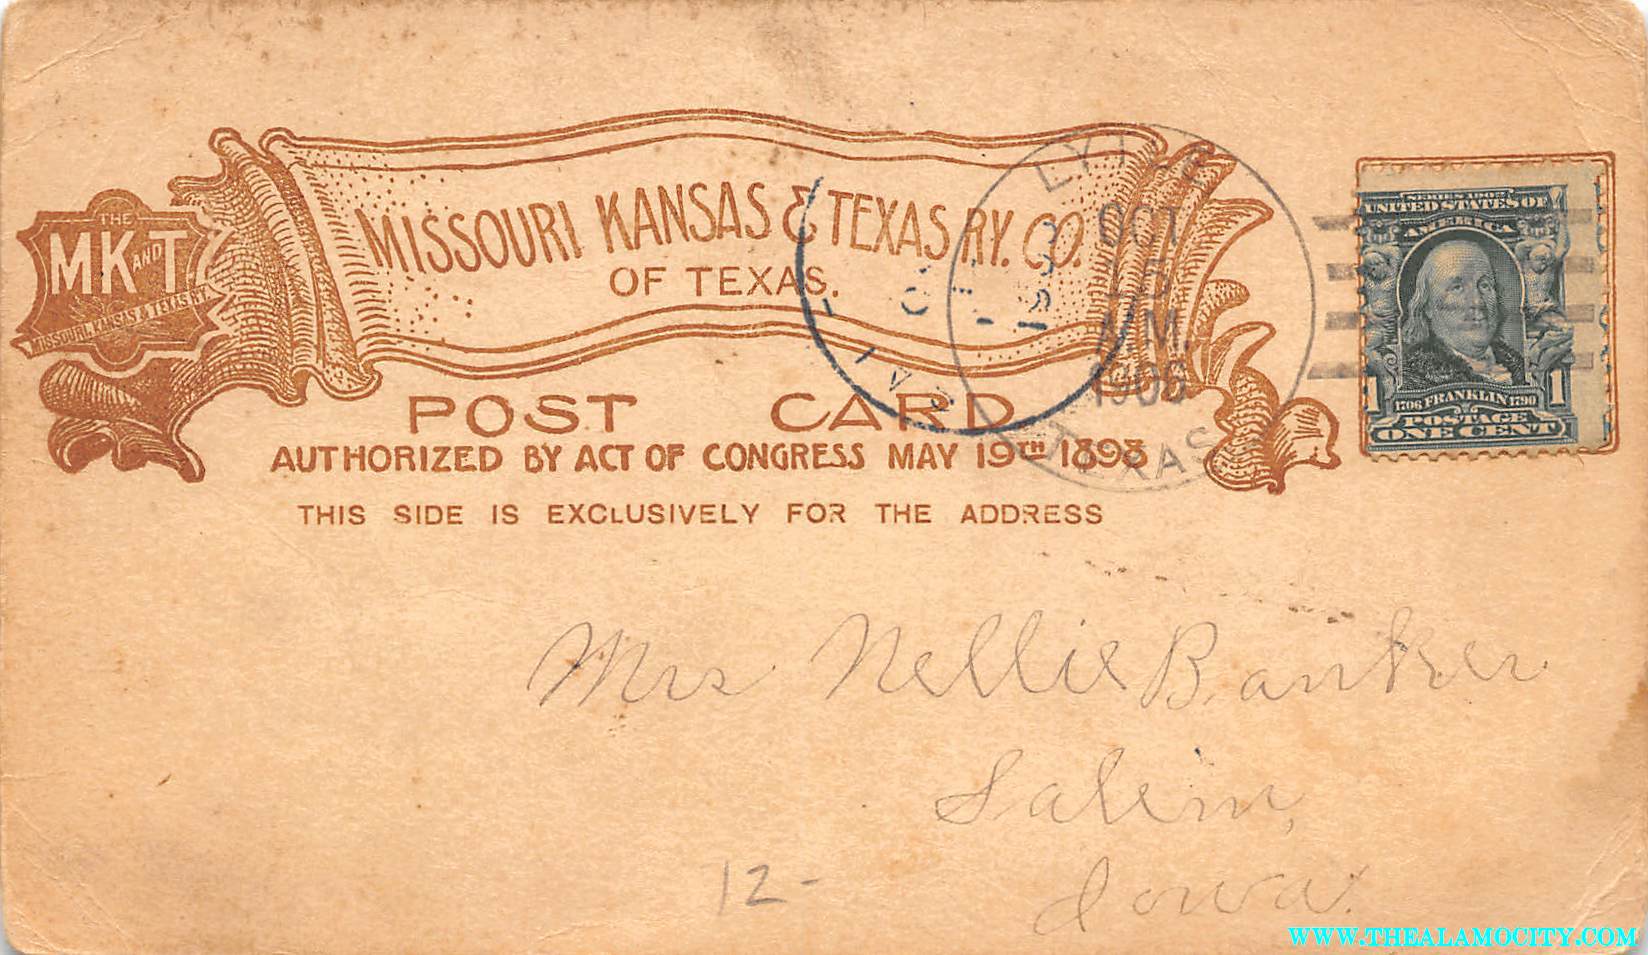 THE
MK AND T.
MISSOURI, KANSAS & TEXAS RY.
MISSOURI KANSAS & TEXAS RY. CO.
OF TEXAS.
POST CARD
AUTHORIZED BY ACT OF CONGRESS MAY 19TH 1898
THIS SIDE IS EXCLUSIVELY FOR THE ADDRESS
OCT
15
A.M.
1906
TEXAS
SERIES 1902
UNITED STATES OF
AMERICA
1 1
1706 FRANKLIN 1790
POSTAGE
ONE CENT
Mrs Nellie Banker
Salem,
Iowa.
12-
WWW.THEALAMOCITY.COM